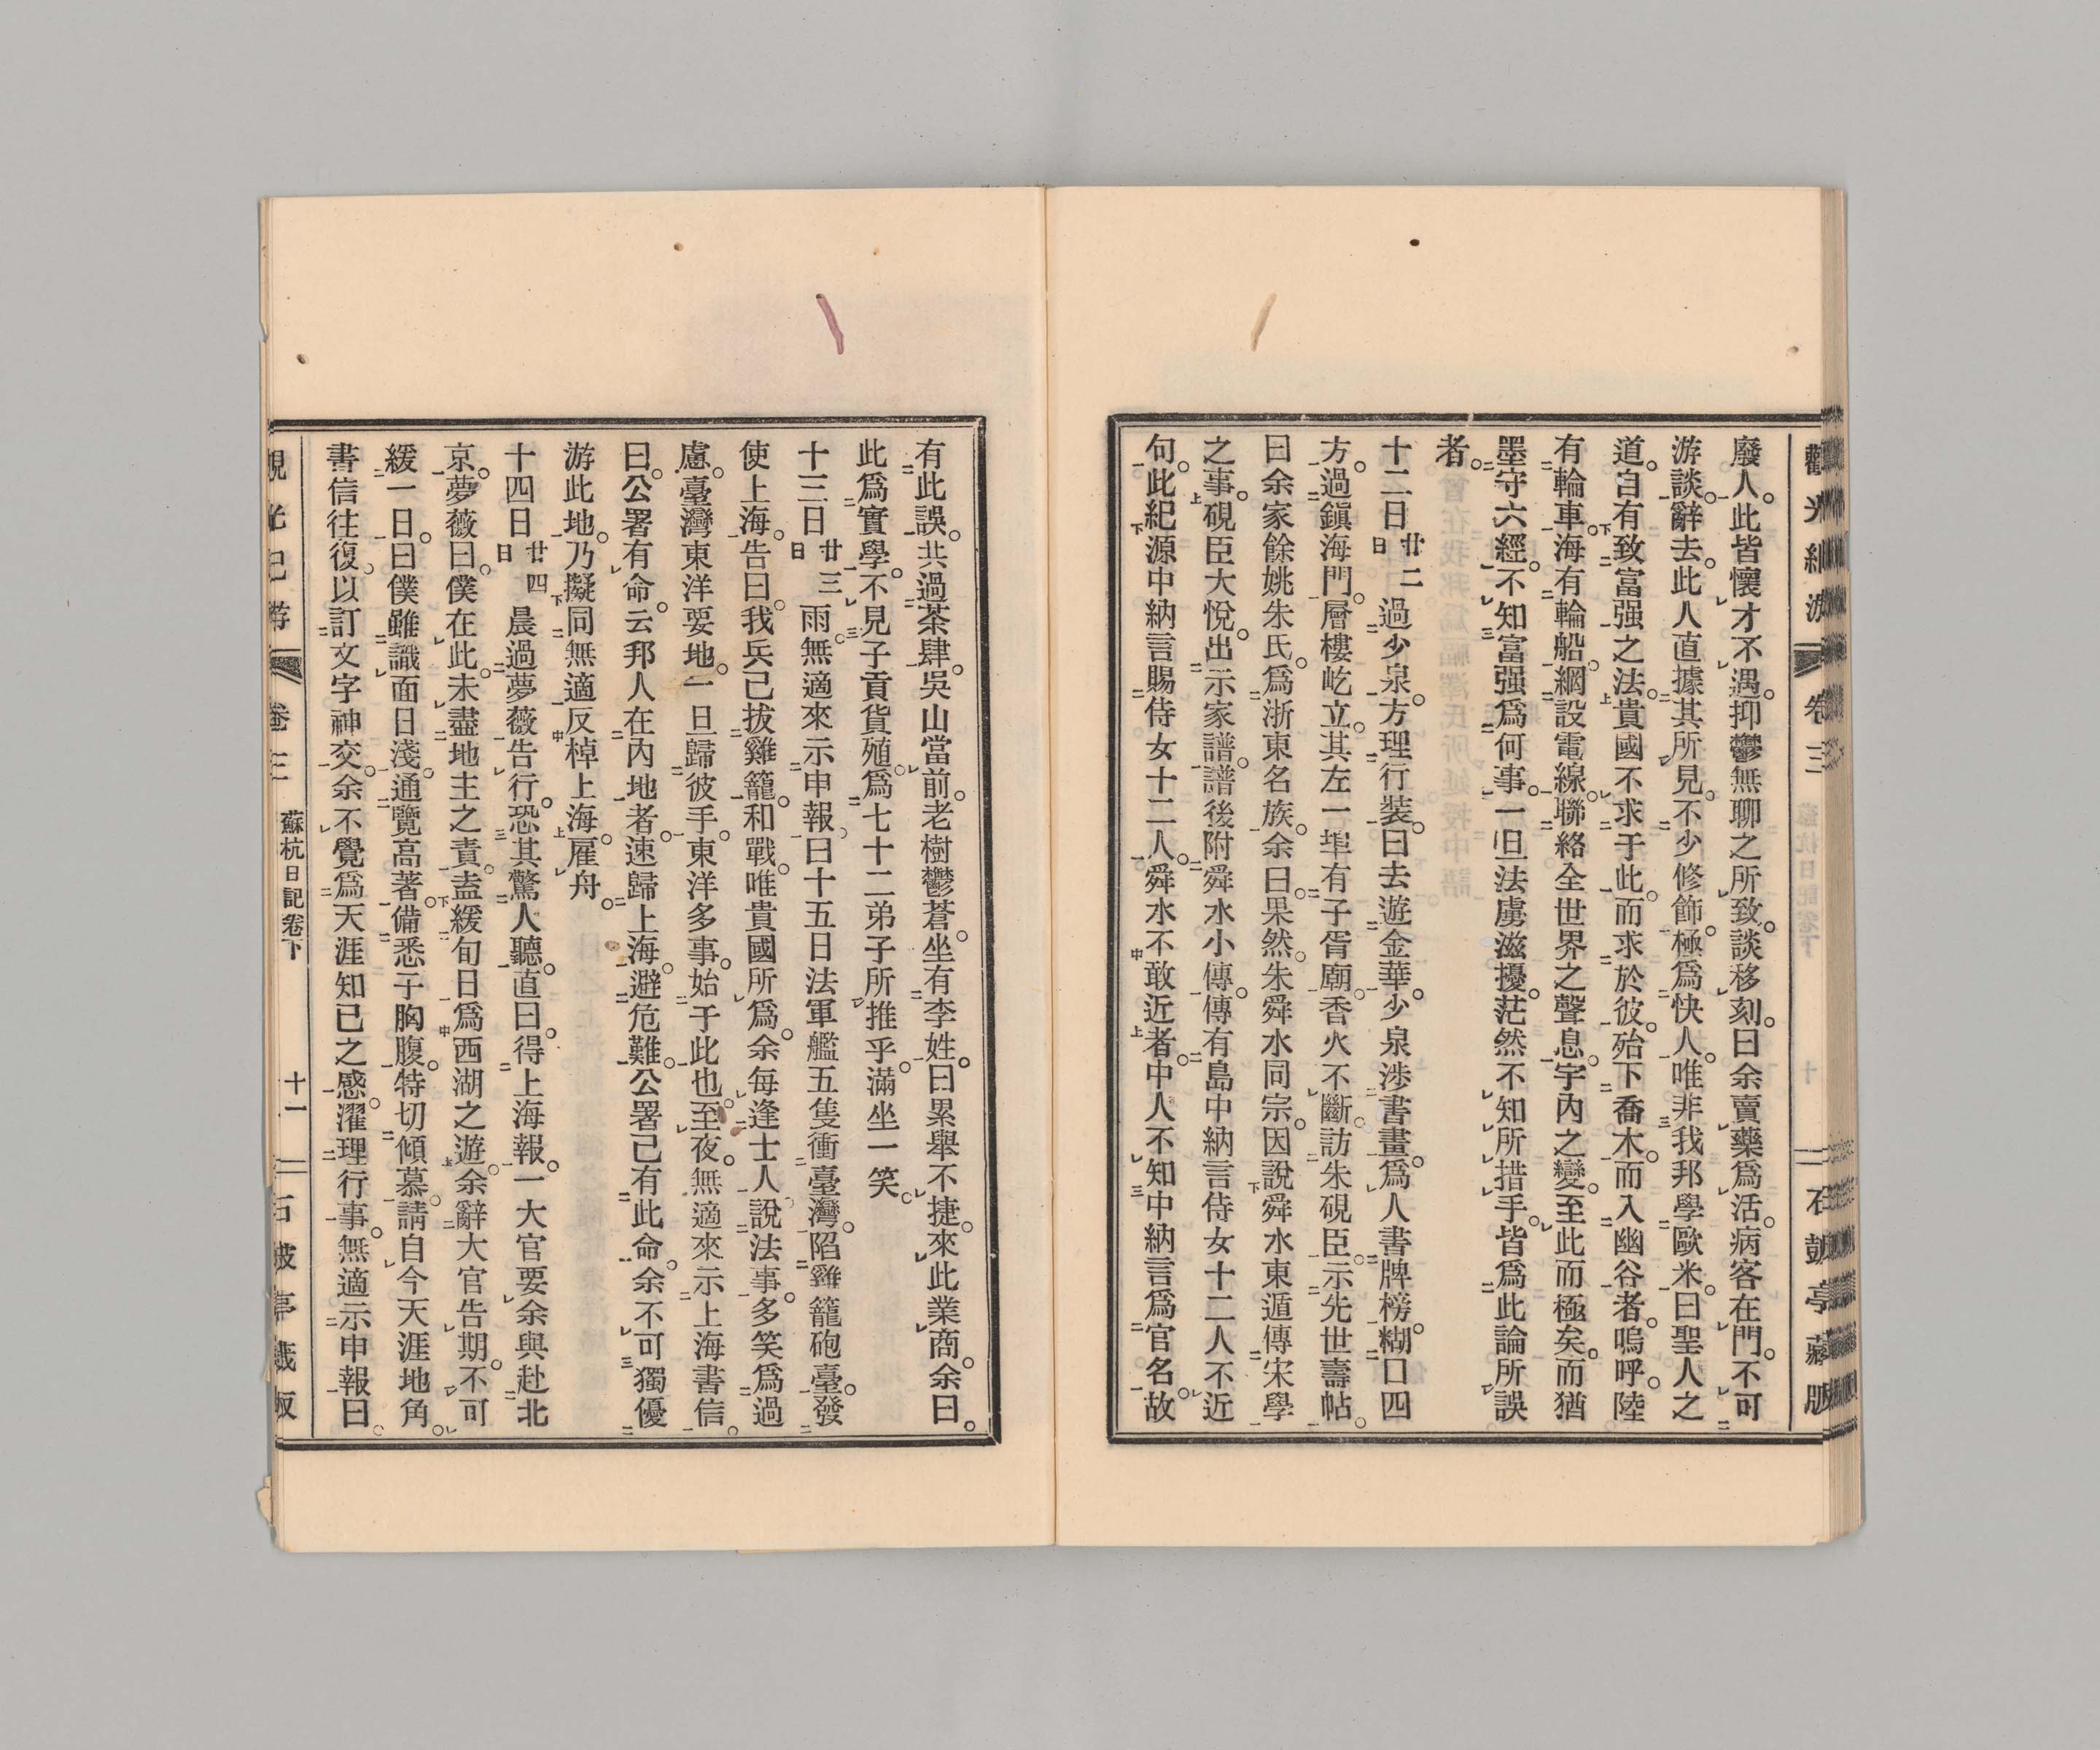 觀光紀游 卷三 石鼓亭藏版
廢人。此皆懷才不遇。抑鬱無聊之所致。談移刻。曰余賣藥爲活。病客在門。不可
游談。辭去。此人直據其所見。不少修飾。極爲快人。唯非我邦學歐米。曰聖人之
道。自有致富强之法。貴國不求于此。而求於彼。殆下喬木。而入幽谷者。嗚呼。陸
有輪車。海有輪船。網設電線。聯絡全世界之聲息。宇內之變。至此而極矣。而猶
墨守六經。不知富强爲何事。一旦法虜滋擾。茫然不知所措手。皆爲此論所誤
者。
十二日 廿二日 過少泉。方理行裝。曰去遊金華。少泉涉書畫。爲人書牌榜。糊口四
方。過鎭海門。層樓屹立。其左一埠有子胥廟。香火不斷。訪朱硯臣。示先世壽帖。
曰余家餘姚朱氏。爲浙東名族。余曰。果然。朱舜水同宗。因說舜水東遁傳宋學
之事。硯臣大悅。出示家譜。譜後附舜水小傳。傳有島中納言侍女十二人不近
句。此紀源中納言賜侍女十二人。舜水不敢近者。中人不知中納言爲官名。故
有此誤。共過茶肆。吳山當前。老樹鬱蒼。坐有李姓。曰累舉不捷。來此業商。余曰。
此爲實學。不見子貢貨殖。爲七十二弟子所推乎。滿坐一笑。
十三日 廿三日 雨。無適來示申報。曰十五日法軍艦五隻衝臺灣。陷雞籠砲臺。發
使上海。告曰。我兵已拔雞籠。和戰。唯貴國所爲。余每逢士人。說法事。多笑爲過
慮。臺灣東洋要地。一旦歸彼手。東洋多事。始于此也。至夜。無適來示上海書信。
曰。公署有命。云邦人在內地者。速歸上海。避危難。公署已有此命。余不可獨優
游此地。乃擬同無適反棹上海。雇舟。
十四日 廿四日 晨過夢薇告行。恐其驚人聽。直曰。得上海報。一大官要余與赴北
京。夢薇曰。僕在此。未盡地主之責。盍緩旬日爲西湖之遊。余辭大官告期。不可
緩一日。曰僕雖識面日淺。通覽高著。備悉于胸腹。特切傾慕。請自今天涯地角。
書信往復。以訂文字神交。余不覺爲天涯知已之感。濯理行事。無適示申報曰。
卷三 蘇杭日記卷下 十一